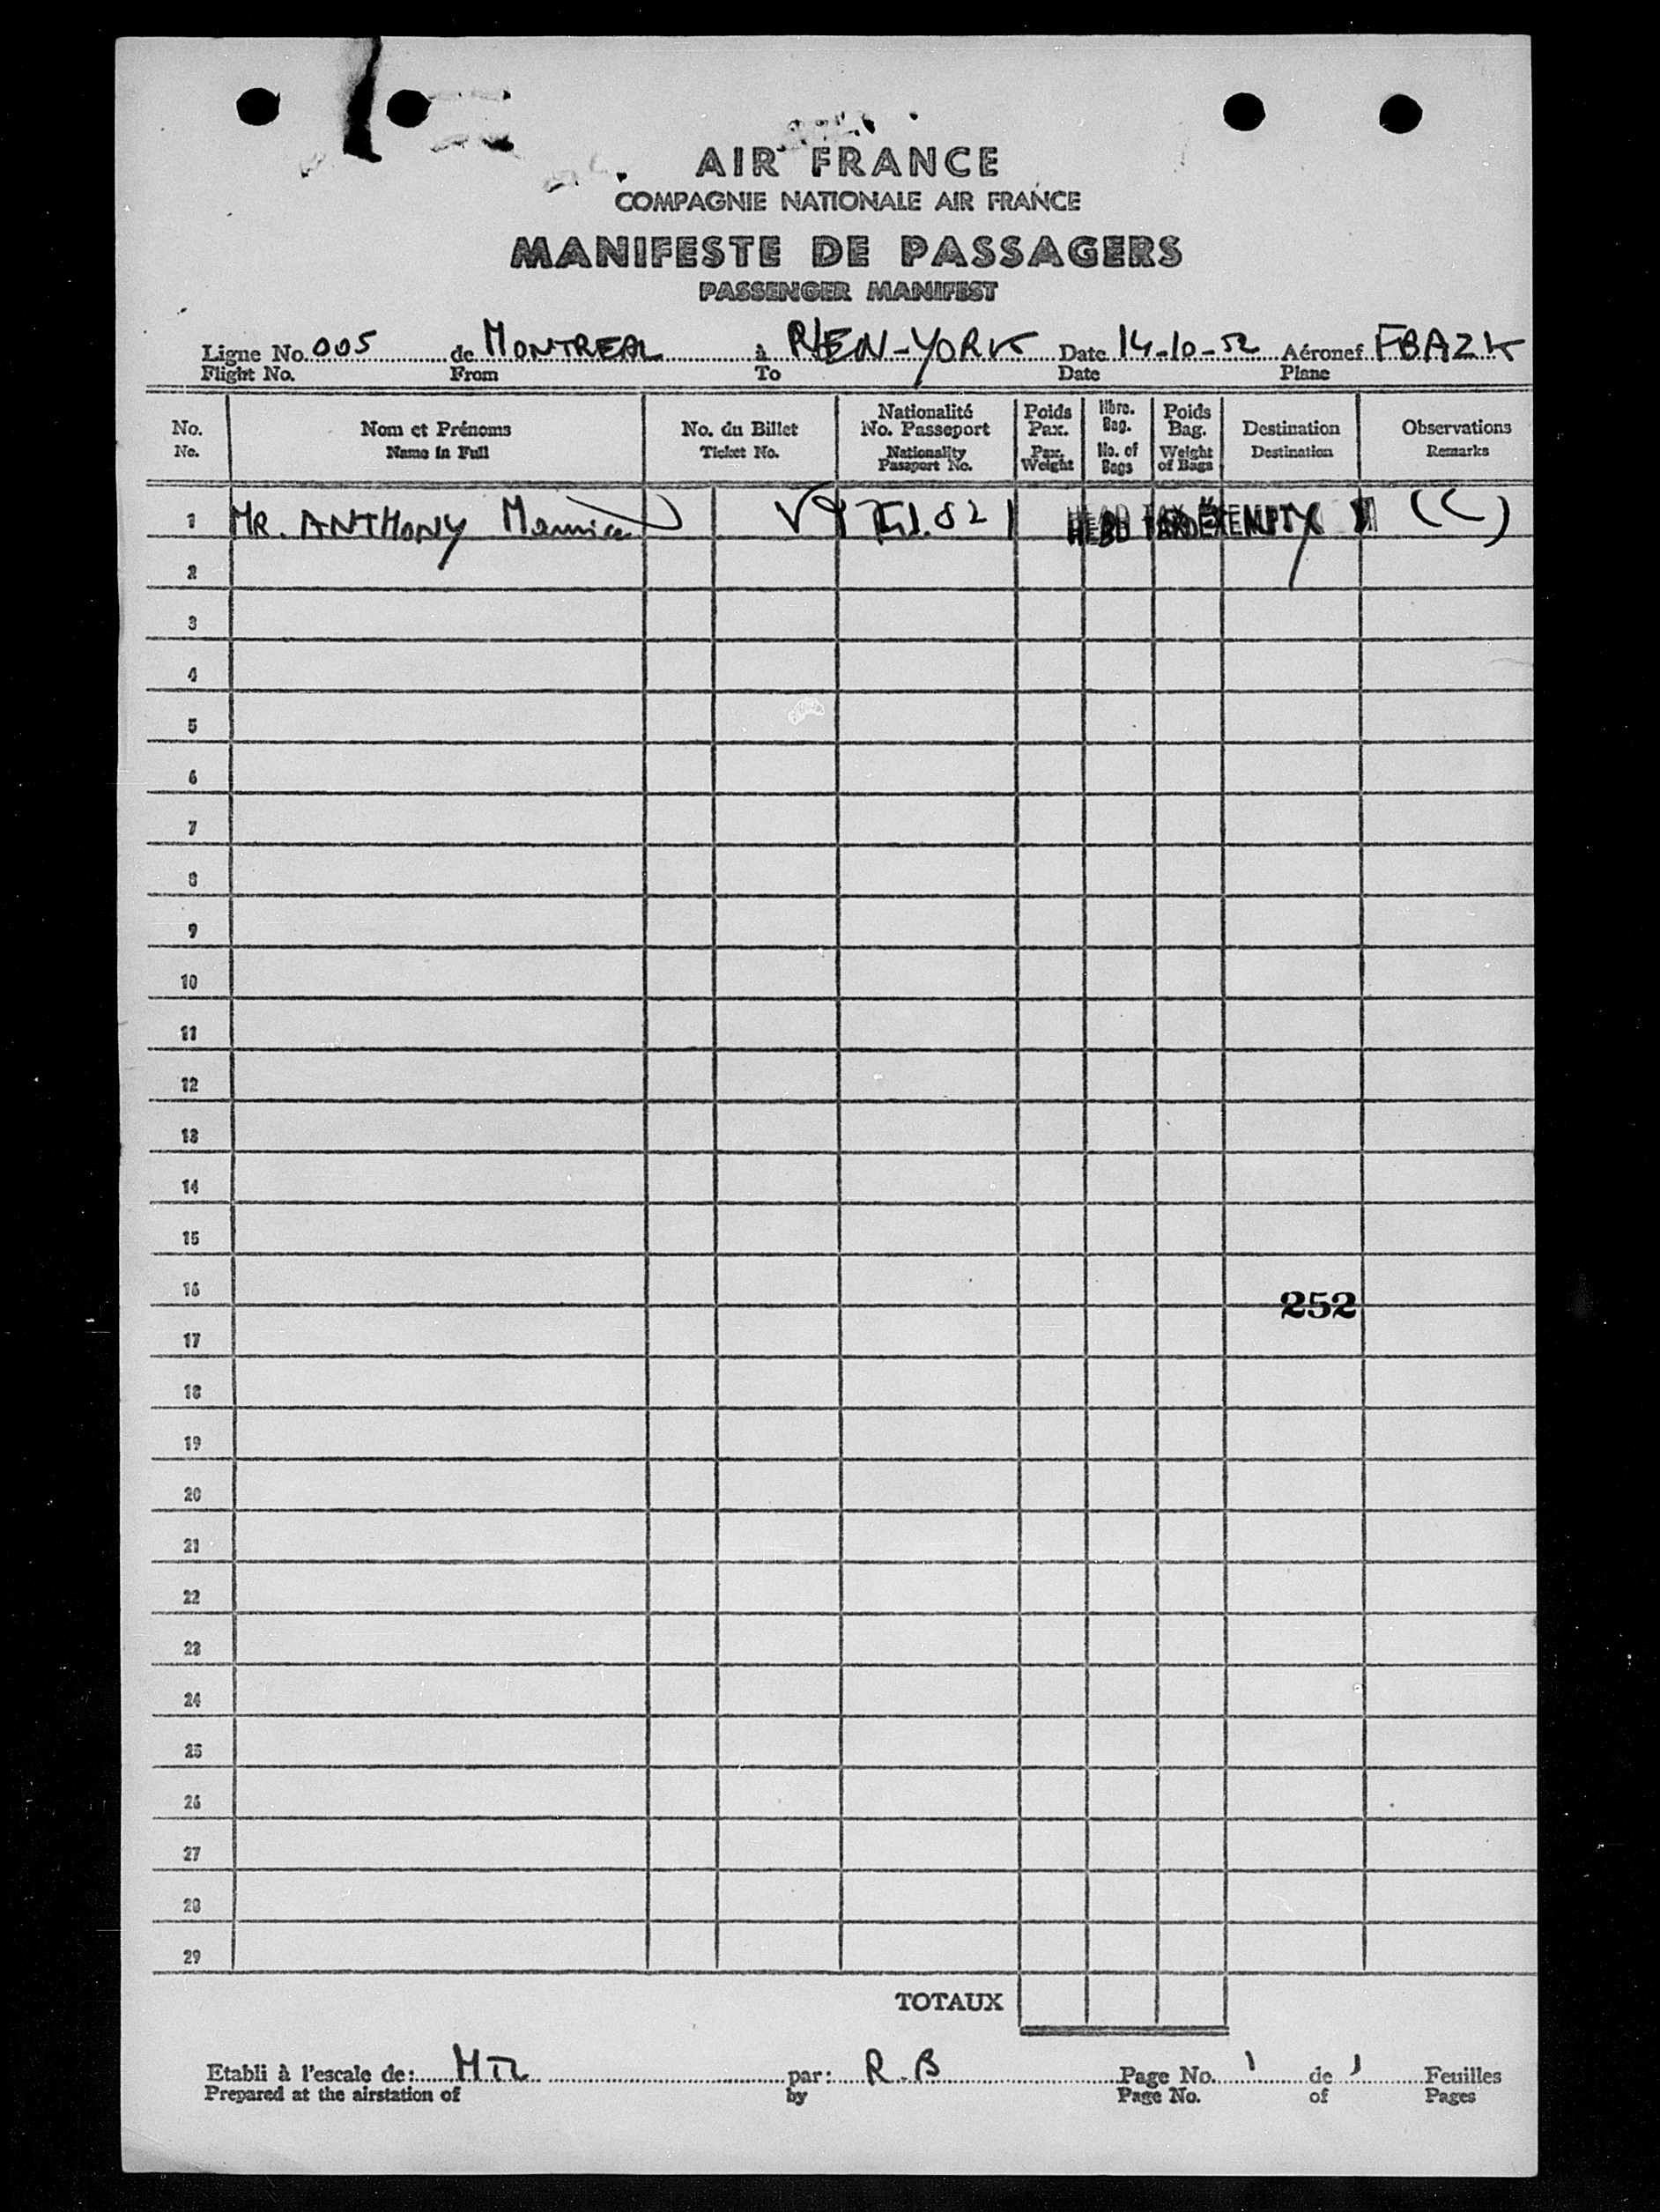 AIR FRANCE
COMPAGNIE NATIONALE AIR FRANCE
MANIFESTE DE PASSAGERS
PASSENGER MANIFEST
Ligne No. 005 de MONTREAL à NEW-YORK Date 14-10-52 Aéronef FBAZK
Flight No. From To Date Plane
No. Nom et Prénoms No. du Billet Nationalité No. Passeport Poids Pax. Nbre. Bag. Poids Bag. Destination Observations
No. Name in Full Ticket No. Nationality Passport No. Pax. Weight No. of Bags Weight of Bags Destination Remarks
1 MR. ANTHONY HEAD TAX EXEMPT (C)
2
3
4
5
6
7
8
9
10
11
12
13
14
15
16
252
17
18
19
20
21
22
23
24
25
26
27
28
29
TOTAUX
Etabli à l'escale de: MTL par: R.B Page No. 1 de 1 Feuilles
Prepared at the airstation of by Page No. of Pages